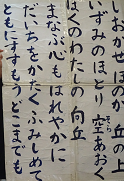 おかぜほのか 丘の上
いずみのほとり 空あおく
そら
ぼくのわたしの 向丘
まなぶ心もはれやかに
だいちをかたくふみしめて
ともにすすもうどこまでも